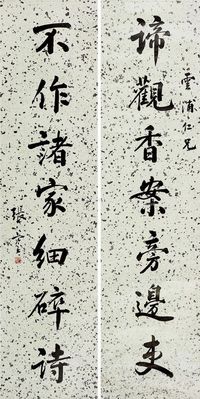 諦觀香案旁邊吏
雲浦仁兄
不作諸家細碎詩
張